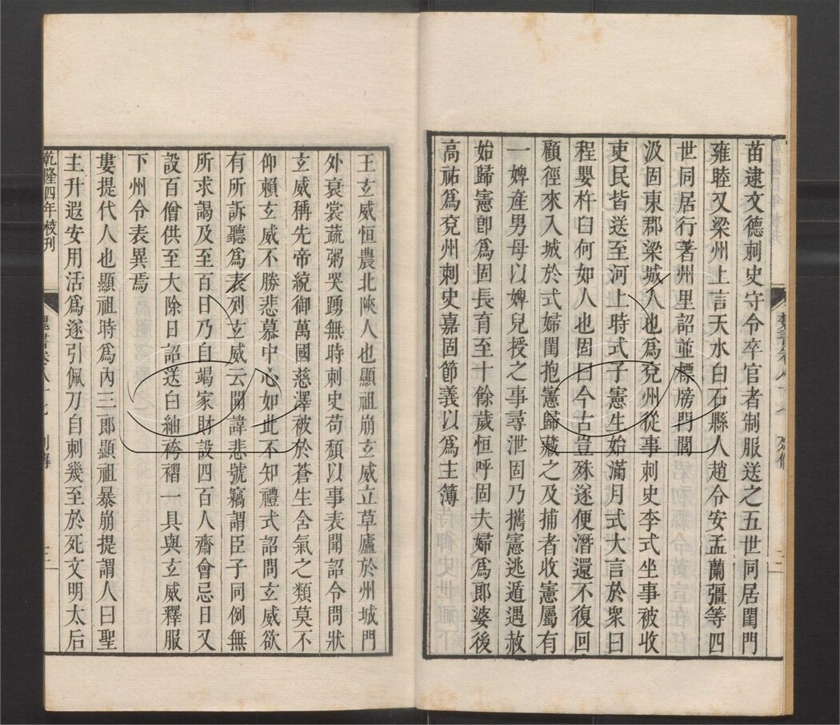 苗逮文德刺史守令卒官者制服送之五世同居閨門
雍睦又梁州上言天水白石縣人趙令安孟蘭彊等四
世同居行著州里詔並標牓門閭
汲固東郡梁城人也爲兗州從事刺史李式坐事被收
吏民皆送至河上時式子憲生始滿月式大言於衆曰
程嬰杵臼何如人也固曰今古豈殊遂便潛還不復回
顧徑來入城於式婦閨抱憲歸藏之及捕者收憲屬有
一婢產男母以婢兒授之事尋泄固乃攜憲逃遁遇赦
始歸憲卽爲固長育至十餘歲恒呼固夫婦爲郎婆後
高祐爲兗州刺史嘉固節義以爲主簿
王玄威恒農北陝人也顯祖崩玄威立草廬於州城門
外衰裳蔬粥哭踊無時刺史苟頹以事表聞詔令問狀
玄威稱先帝統御萬國慈澤被於蒼生含氣之類莫不
仰賴玄威不勝悲慕中心如此不知禮式詔問玄威欲
有所訴聽爲表列玄威云聞諱悲號竊謂臣子同例無
所求謁及至百日乃自竭家財設四百人齋會忌日又
設百僧供至大除日詔送白紬袴褶一具與玄威釋服
下州令表異焉
婁提代人也顯祖時爲內三郎顯祖暴崩提謂人曰聖
主升遐安用活爲遂引佩刀自刺幾至於死文明太后
乾隆四年校刊